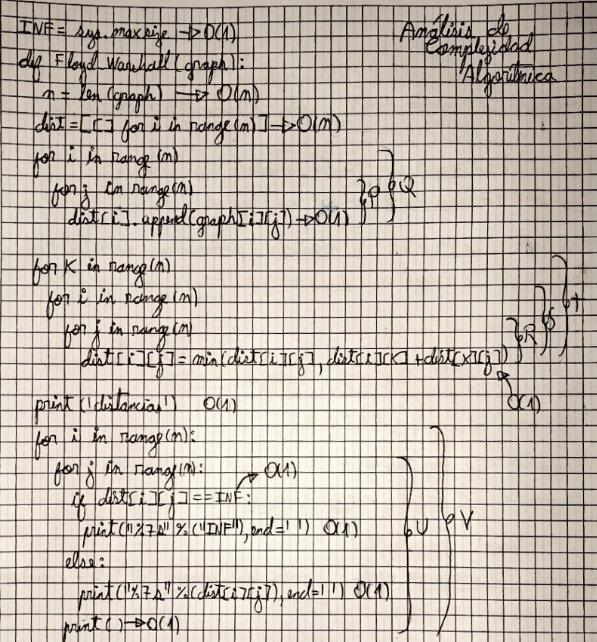 INF = sys.maxsize → O(1)
Análisis de
Complejidad
Algorítmica
def Floyd Warshall (graph):
n = len (graph) → O(n)
dist = [[] for i in range (n)] → O(n)
for i in range (n)
for j in range (n)
dist[i].append (graph[i][j]) → O(1) } P } Q
for K in range (n)
for i in range (n)
for j in range (n)
dist[i][j] = min (dist[i][j], dist[i][K] + dist[K][j]) } R } S } T
O(1)
print ('distancias') O(1)
for i in range (n):
for j in range (n): O(1)
if dist[i][j] == INF:
print ("%7s" % ("INF"), end=' ') O(1) } U } V
else:
print ("%7s" % (dist[i][j]), end=' ') O(1)
print () → O(1)